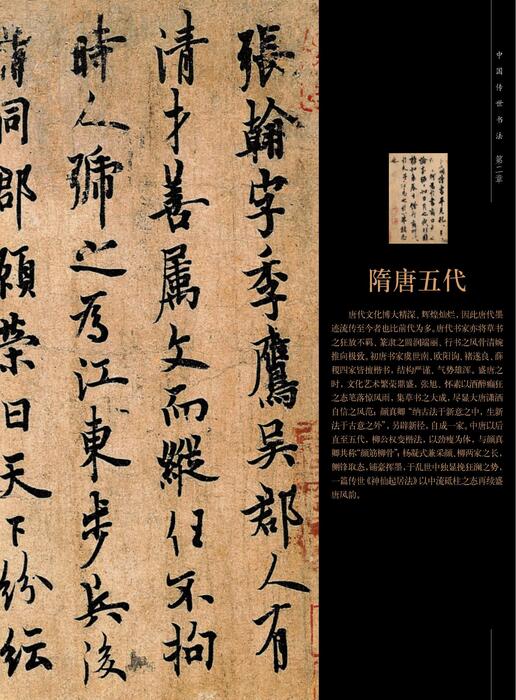 張翰字季鷹吳郡人有
清才善屬文而縱任不拘
時人號之為江東步兵後
謂同郡顧榮曰天下紛紜
中国传世书法 第二章
隋唐五代
唐代文化博大精深、辉煌灿烂,因此唐代墨
迹流传至今者也比前代为多。唐代书家亦将草书
之狂放不羁、篆隶之圆润端丽、行书之风骨清婉
推向极致。初唐书家虞世南、欧阳询、褚遂良、薛
稷四家皆擅楷书,结构严谨、气势雄浑。盛唐之
时,文化艺术繁荣鼎盛,张旭、怀素以酒醉癫狂
之态笔落惊风雨,集草书之大成,尽显大唐潇洒
自信之风范;颜真卿“纳古法于新意之中,生新
法于古意之外”,另辟新径,自成一家。中唐以后
直至五代,柳公权变楷法,以劲瘦为体,与颜真
卿共称“颜筋柳骨”;杨凝式兼采颜、柳两家之长,
侧锋取态,铺豪挥墨,于乱世中独显挽狂澜之势,
一篇传世《神仙起居法》以中流砥柱之态再续盛
唐风韵。